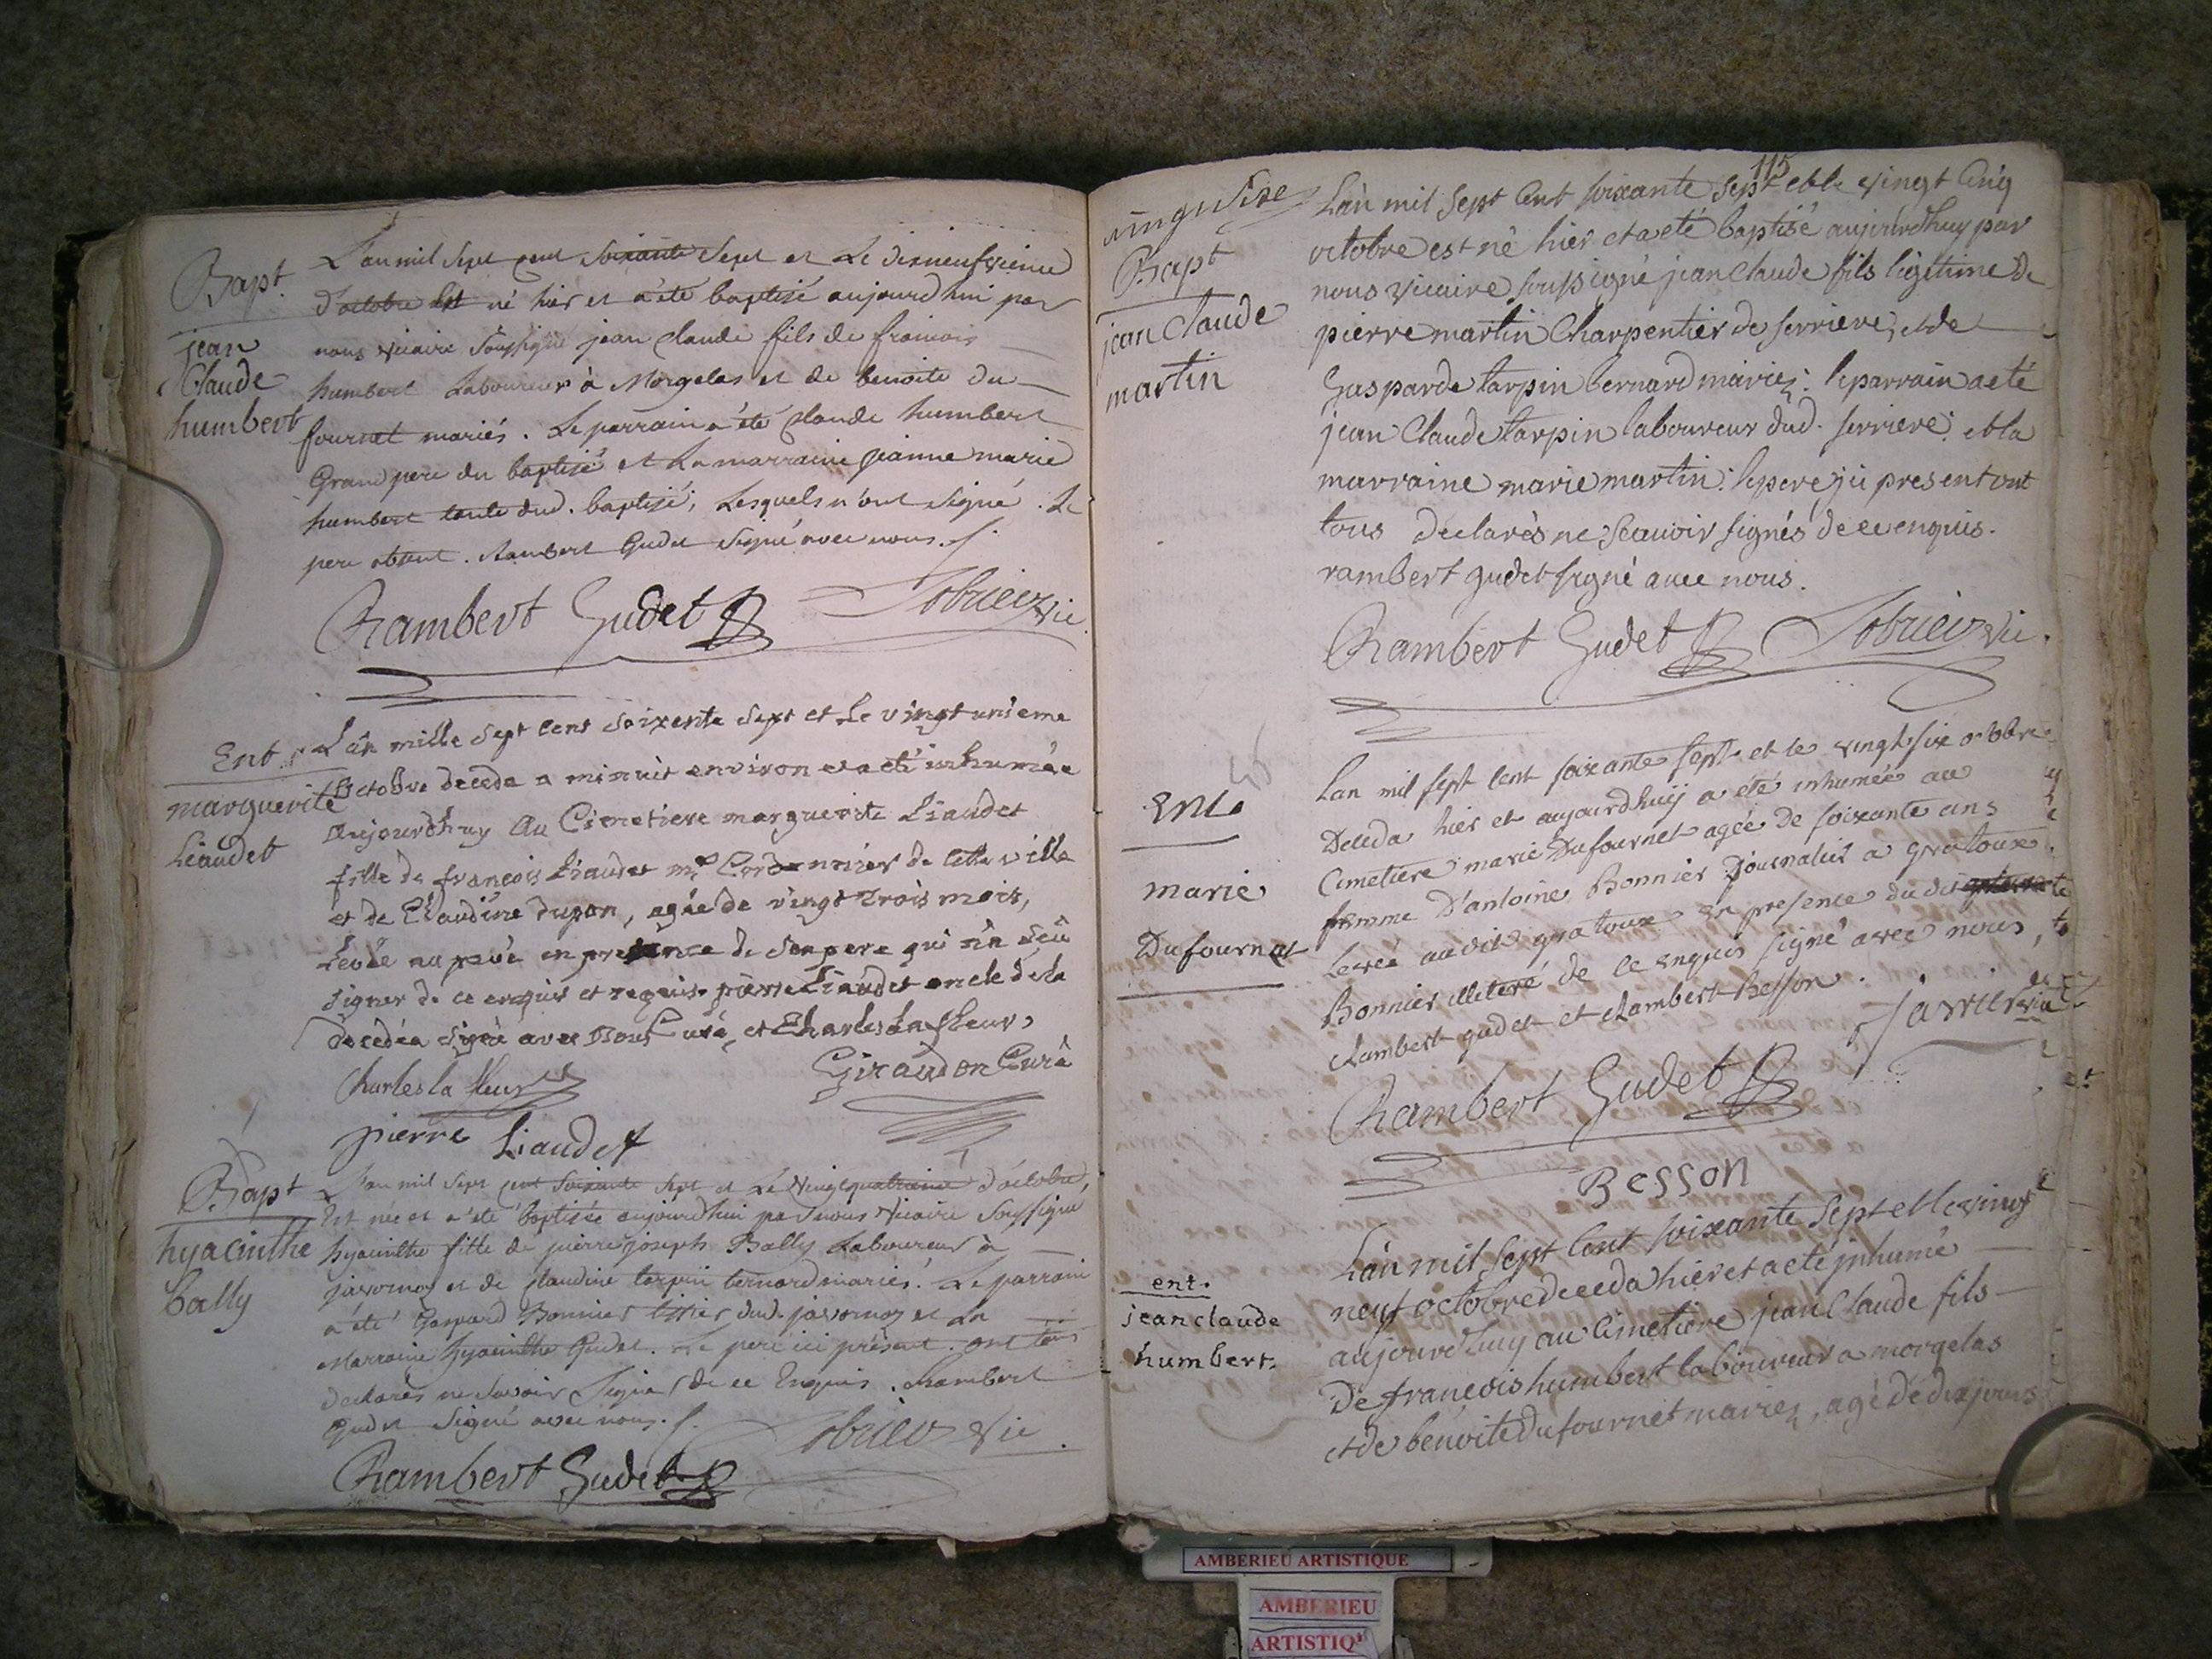 Bapt.
jean
Claude
humbert
L'an mil sept cent soixante sept et Le dixneufvieme
d'octobre Est né hier et a été baptisé aujourd'hui par
nous vicaire soussigné jean claude fils de francois
humbert Laboureur à Morgelas et de benoite du
fournet mariés. Le parrain a été claude humbert
Grand pere du baptisé et La marraine jeanne marie
humbert tante dud. baptisé; Lesquels n'ont signé. Le
pere absent. Rambert Gudet signé avec nous.
Rambert Gudet
vic.
Ent.
marguerite
Liaudet
L'an mille sept cens soixente sept et le vingt unieme
Octobre deceda a minuit environ et a eté inhumée
Aujourdhuy Au Cimetiere marguerite Liaudet
fille de françois Liaudet me Cordonnier de cette ville
et de Claudine dupon, agée de vingt trois mois,
Levée au pavé en presence de son pere qui n'a sçu
signer de ce enquis et requis. pierre Liaudet oncle de la
decedée signé avec Nous Curé, et Charles La fleur,
Charles la fleur
Giraudon Curé
pierre Liaudet
Bapt
hyacinthe
bally
L'an mil sept cent soixante sept et Le vingtquatrieme d'octobre,
Est née et a été baptisée aujourd'hui par nous vicaire soussigné
hyacinthe fille de pierre joseph Bally Laboureur à
javornoz et de claudine tarpin bernard mariés. Le parrain
a été Gaspard Bonnier tissier dud. javornoz et La
Marraine hyacinthe Gudet. Le pere ici présent. ont tous
declarés ne savoir signer de ce Enquis. Rambert
Gudet signé avec nous.
vic.
Rambert Gudet
115
Bapt
jean Claude
martin
L'an mil sept cent soixante sept et le vingt cinq
octobre est né hier et a eté baptisé aujourdhuy par
nous vicaire soussigné jean claude fils légitime de
pierre martin Charpentier de serriere, et de
Gasparde tarpin bernard mariez: le parrain a eté
jean Claude tarpin laboureur dud. serriere: et la
marraine marie martin: le pere ici present ont
tous declarès ne scavoir signés de ce enquis.
rambert gudet signé avec nous.
Rambert Gudet
vic.
Ent.
marie
Dufournet
Lan mil sept cent soixante sept et le vingt six octobre
Deceda hier et aujourdhuy a été inhumée au
Cimetiere marie Dufournet agée de soixante ans
femme D'antoine Bonnier Journalier a gratoux
Levée audit gratoux en presence dudit
Bonnier illiteré de ce enquis signé avec nous,
Rambert gudet et Rambert Besson.
Rambert Gudet
Besson
ent.
jean claude
humbert.
L'an mil sept cent soixante sept et le vingt
neuf octobre deceda hier et a eté inhumé
aujourdhuy au Cimetiere jean Claude fils
De françois humbert laboureur a morgelas
et de benoite Dufournet mariez, agé de dix jours
AMBERIEU ARTISTIQUE
AMBERIEU
ARTISTIQ